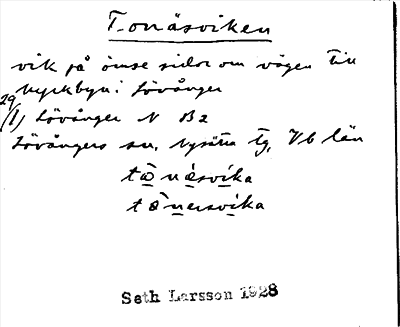 Tonäsviken
vik på ömse sidor om vägen till
kyrkbyn i Lövånger
29
(1) Lövånger N B2
Lövångers sn, Nysätra tg, Vb län
Seth Larsson 1928